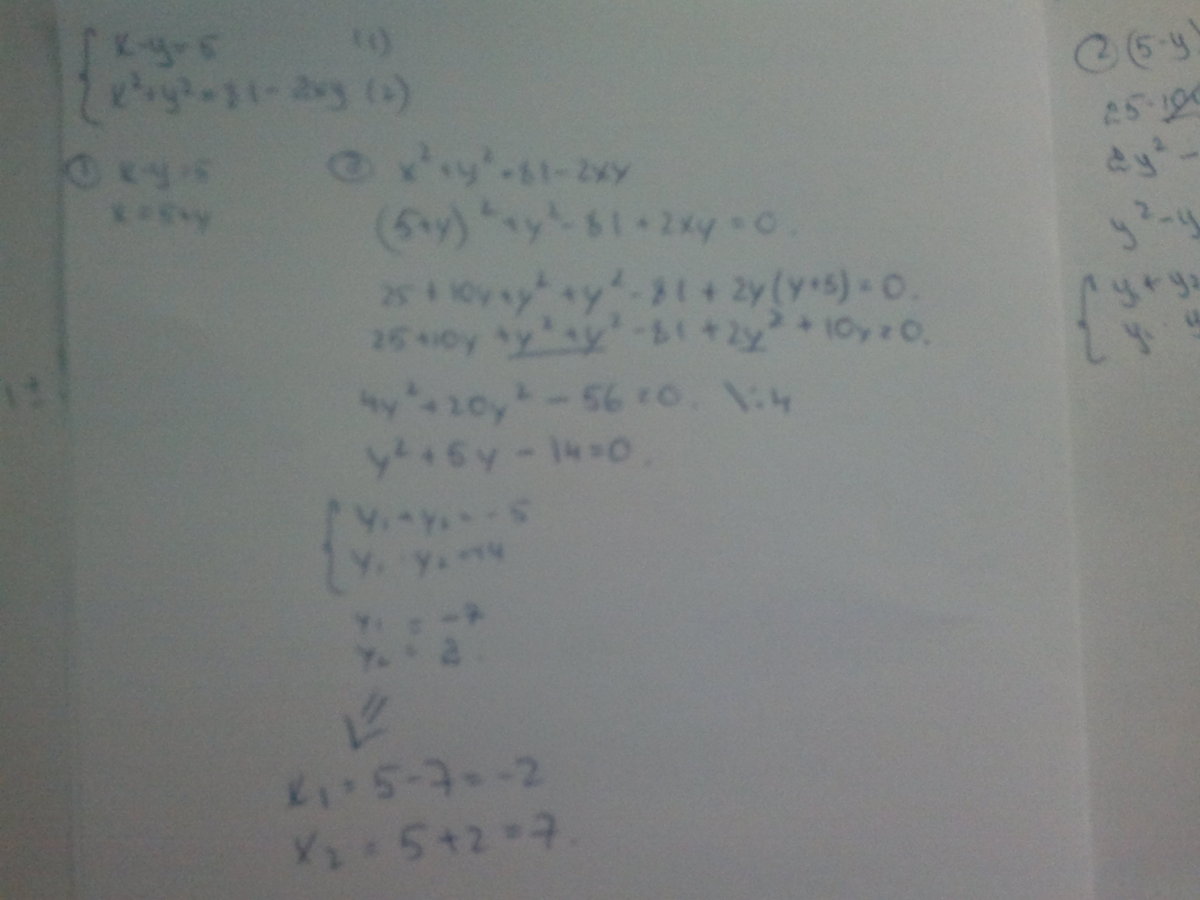 x-y=5 (1)
x²+y²=81-2xy (2)
① x-y=5
x=5+y
② x²+y²=81-2xy
(5+y)²+y²-81+2xy=0.
25+10y+y²+y²-81+2y(y+5)=0.
25+10y+y²+y²-81+2y²+10y=0.
4y²+20y²-56=0. \:4
y²+5y-14=0.
y₁+y₂=-5
y₁·y₂=-14
y₁=-7
y₂=2.
x₁=5-7=-2
x₂=5+2=7.
② (5-y)
25-10
2y²-
y²-y
y₁+y₂
y₁·y
1±